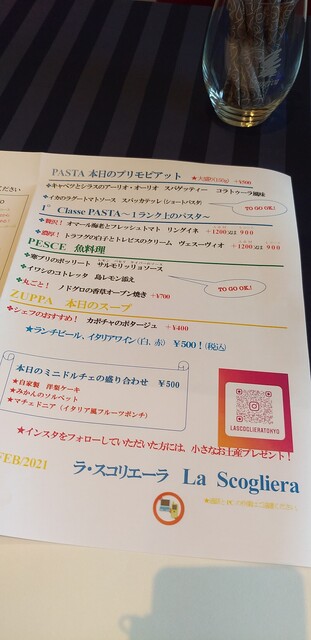 ください
PASTA 本日のプリモピアット ★大盛り(120g) +¥300
❖キャベツとシラスのアーリオ・オーリオ スパゲッティー コラトゥーラ風味
❖イカのラグートマトソース スパッカテッレ(ショートパスタ)
TO GO OK!
1st Classe PASTA～1ランク上のパスタ～
❖贅沢！ オマール海老とフレッシュトマト リングイネ +1200又は900
❖濃厚！ トラフグの白子とトレビスのクリーム ヴェスーヴィオ +1200又は900
PESCE 魚料理
❖寒ブリのボッリート サルモリッリョソース
❖イワシのコトレッタ 島レモン添え
TO GO OK!
❖丸ごと！ ノドグロの香草オーブン焼き +¥700
ZUPPA 本日のスープ
❖シェフのおすすめ！ カボチャのポタージュ +¥400
★ランチビール、イタリアワイン(白、赤) ¥500！(税込)
本日のミニドルチェの盛り合わせ ¥500
★自家製 洋梨ケーキ
★みかんのソルベット
★マチェドニア(イタリア風フルーツポンチ)
LASCOGLIERATOKYO
★インスタをフォローしていただいた方には、小さなお土産プレゼント！
FEB/2021
ラ・スコリエーラ La Scogliera